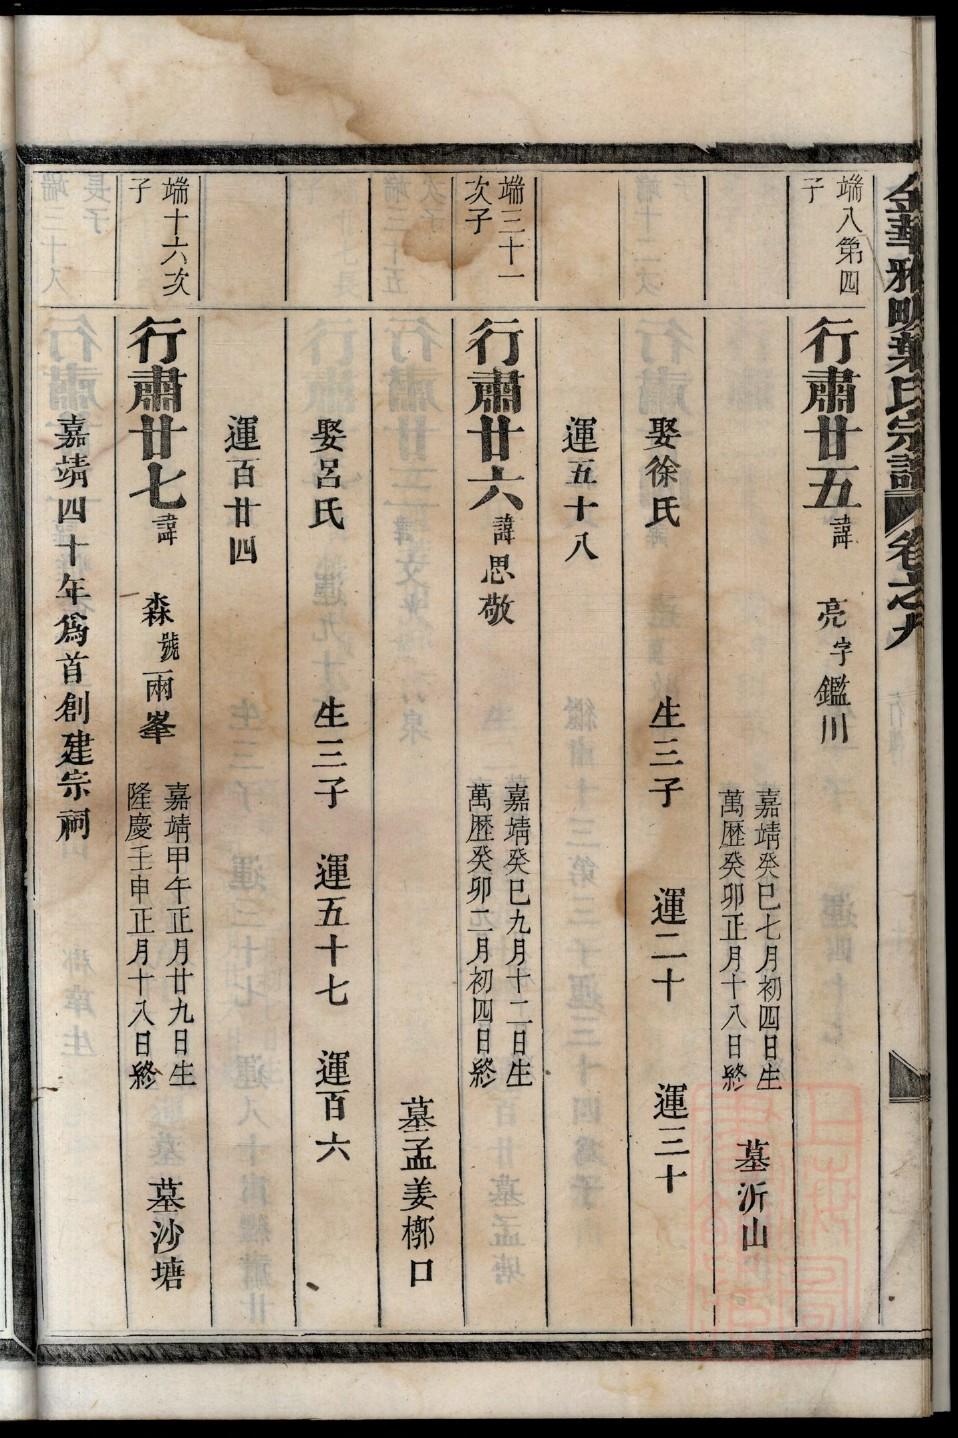 金華雅畈葉氏宗譜 卷之九
端八第四
子
行肅廿五 諱 亮 字 鑑川
嘉靖癸巳七月初四日生
萬歷癸卯正月十八日終
墓沂山
娶徐氏 生三子 運二十 運三十
運五十八
端三十一
次子
行肅廿六 諱 思敬
嘉靖癸巳九月十二日生
萬歷癸卯二月初四日終
墓孟姜槨口
娶呂氏 生三子 運五十七 運百六
運百廿四
端十六次
子
行肅廿七 諱 森 號 雨峯
嘉靖甲午正月廿九日生
隆慶壬申正月十八日終
墓沙塘
嘉靖四十年爲首創建宗祠